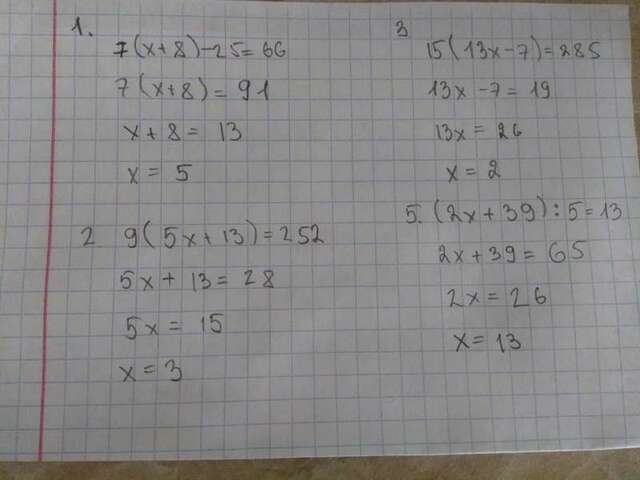 1.
7(x+8)-25=66
7(x+8)=91
x+8=13
x=5
2 9(5x+13)=252
5x+13=28
5x=15
x=3
3
15(13x-7)=285
13x-7=19
13x=26
x=2
5. (2x+39):5=13
2x+39=65
2x=26
x=13